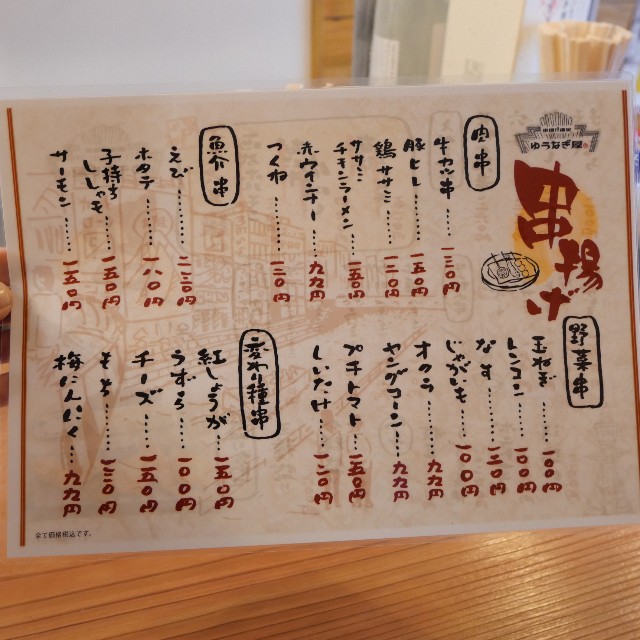 ゆうなぎ屋
串揚げ
肉串
牛カツ串……一三〇円
豚ヒレ……一五〇円
鶏ササミ……一二〇円
ササミチキンラーメン……一五〇円
赤ウインナー……九九円
つくね……一二〇円
魚介串
えび……二三〇円
ホタテ……一八〇円
子持ちししゃも……一五〇円
サーモン……一五〇円
野菜串
玉ねぎ……一〇〇円
レンコン……一〇〇円
なす……一三〇円
じゃがいも……一〇〇円
オクラ……九九円
ヤングコーン……九九円
プチトマト……一五〇円
しいたけ……一二〇円
変わり種串
紅しょうが……一五〇円
うずら……一〇〇円
チーズ……一五〇円
もち……一三〇円
梅にんにく……九九円
全て価格税込です。